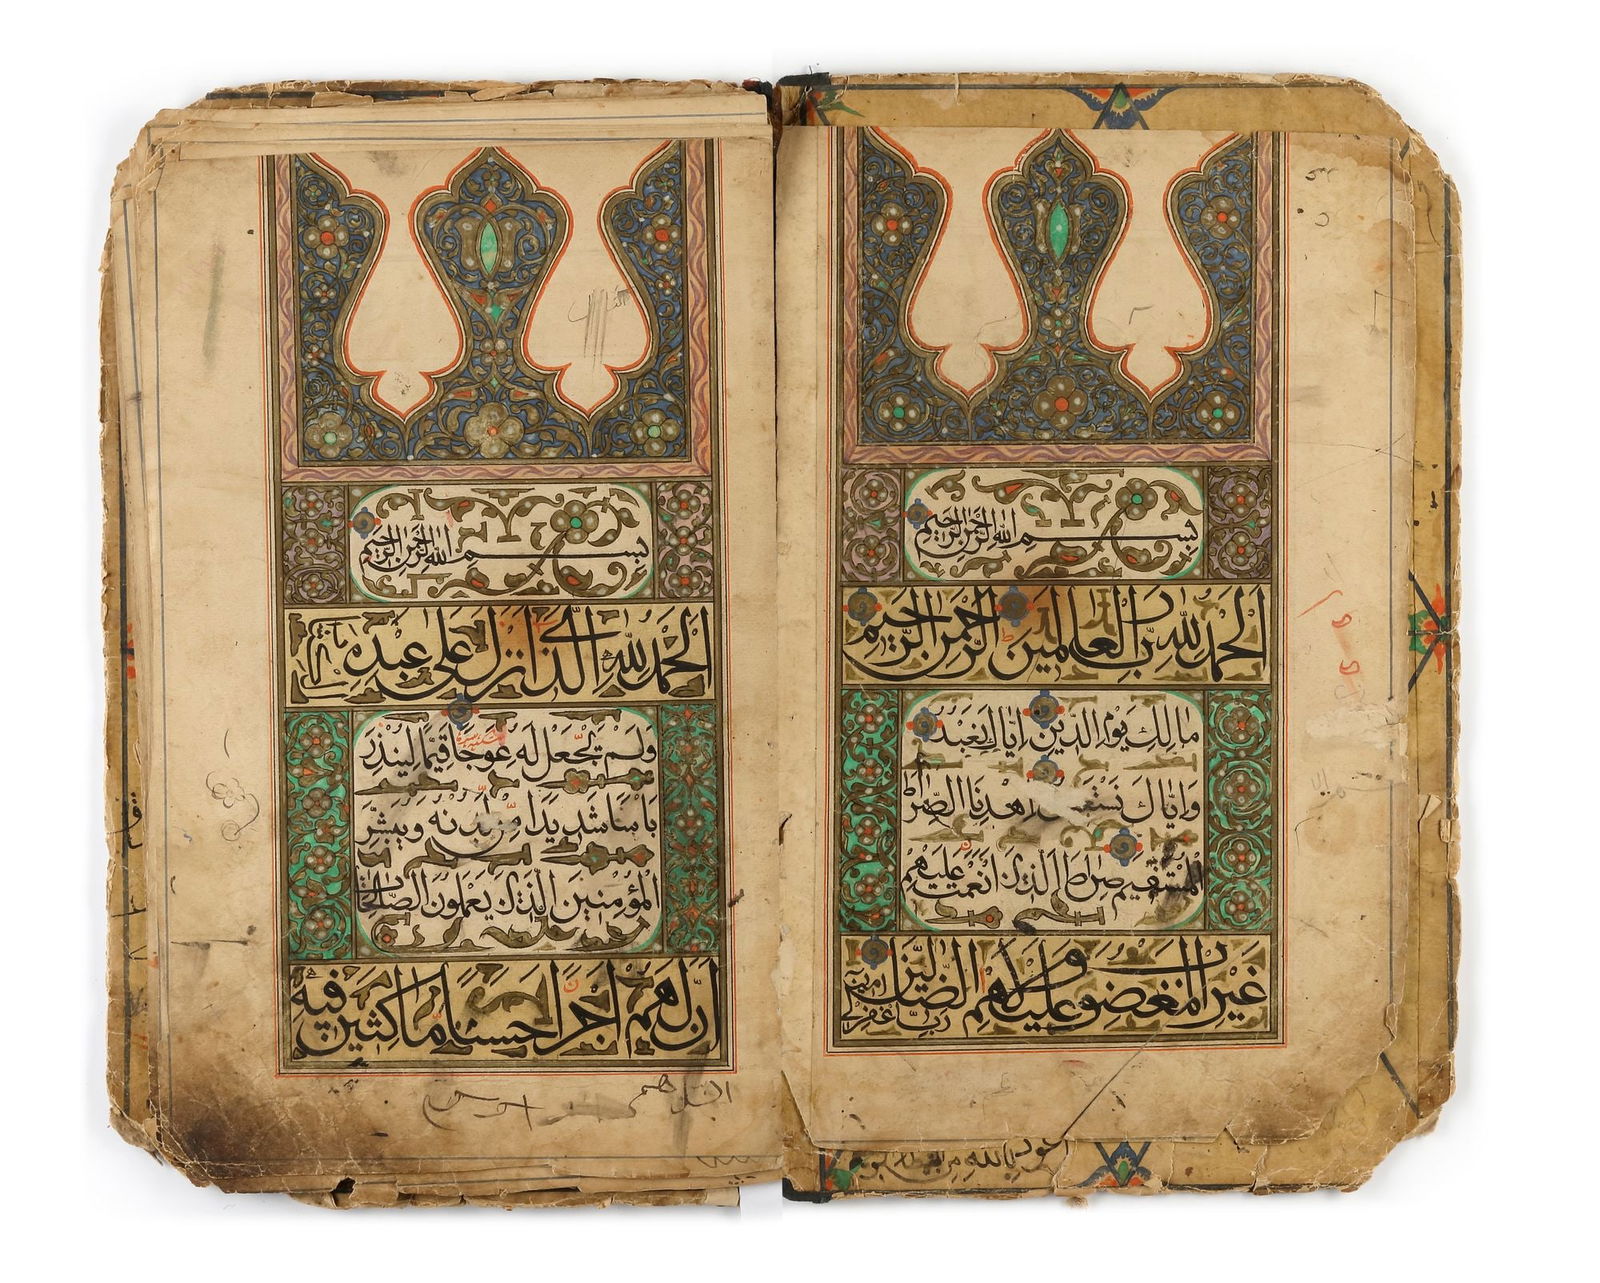 بسم الله الرحمن الرحيم
الحمد لله رب العالمين الرحمن الرحيم
مالك يوم الدين اياك نعبد
واياك نستعين اهدنا الصراط
المستقيم صراط الذين انعمت عليهم
غير المغضوب عليهم ولا الضالين امين رب اغفر لي
اعوذ بالله من
بسم الله الرحمن الرحيم
الحمد لله الذي انزل على عبده الكتاب
ولم يجعل له عوجا قيما لينذر
باسا شديدا من لدنه ويبشر
المؤمنين الذين يعملون الصالحات
ان لهم اجرا حسنا ماكثين فيه